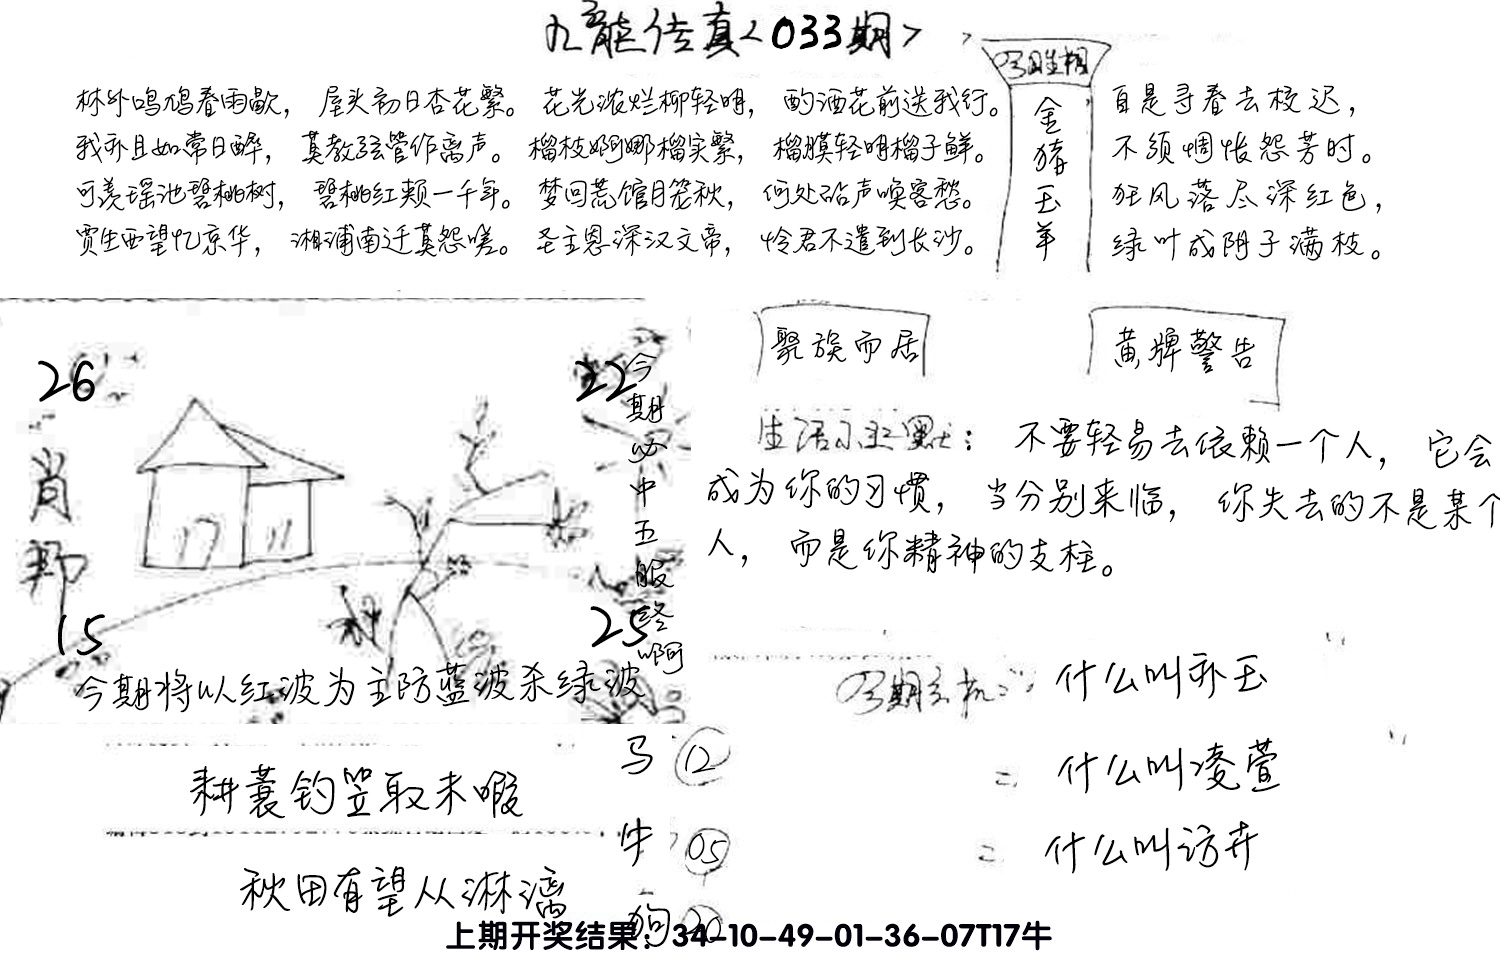 九龙传真<033期>
今期生相
金猪玉羊
林外鸣鸠春雨歇，屋头初日杏花繁。花光浓烂柳轻明，酌酒花前送我行。
我亦且如常日醉，莫教弦管作离声。榴枝婀娜榴实繁，榴膜轻明榴子鲜。
可羡瑶池碧桃树，碧桃红颊一千年。梦回荒馆月笼秋，何处砧声唤客愁。
贾生西望忆京华，湘浦南迁莫怨嗟。圣主恩深汉文帝，怜君不遣到长沙。
自是寻春去校迟，
不须惆怅怨芳时。
狂风落尽深红色，
绿叶成阴子满枝。
26
22
肖
15
25
今期必中五服终啊
今期将以红波为主防蓝波杀绿波
聚族而居
黄牌警告
生活小幽默：不要轻易去依赖一个人，它会
成为你的习惯，当分别来临，你失去的不是某个
人，而是你精神的支柱。
今期玄机：什么叫卦玉
= 什么叫凌萱
= 什么叫访卉
马 12
牛 05
狗 20
耕蓑钓笠取未暇
秋田有望从淋漓
上期开奖结果：34-10-49-01-36-07T17牛